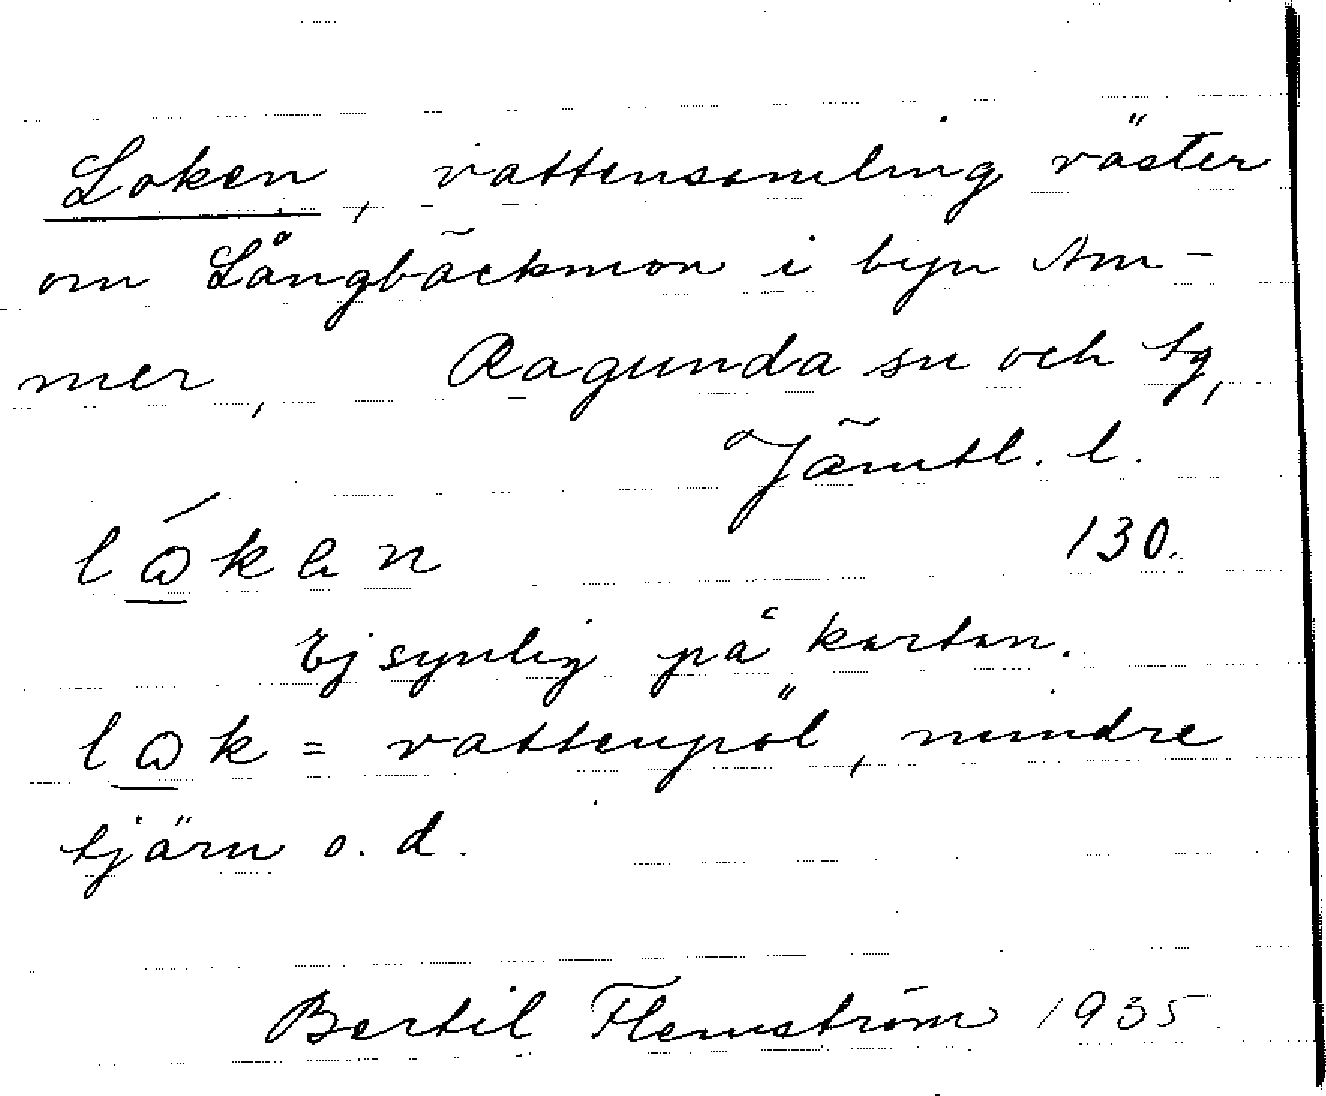 Loken, vattensamling väster
om Långbäckmon i byn Am-
mer, Ragunda sn och tg,
Jämtl. l.
130.
Ej synlig på kartan.
= vattenpöl, mindre
tjärn o. d.
Bertil Flemström 1935